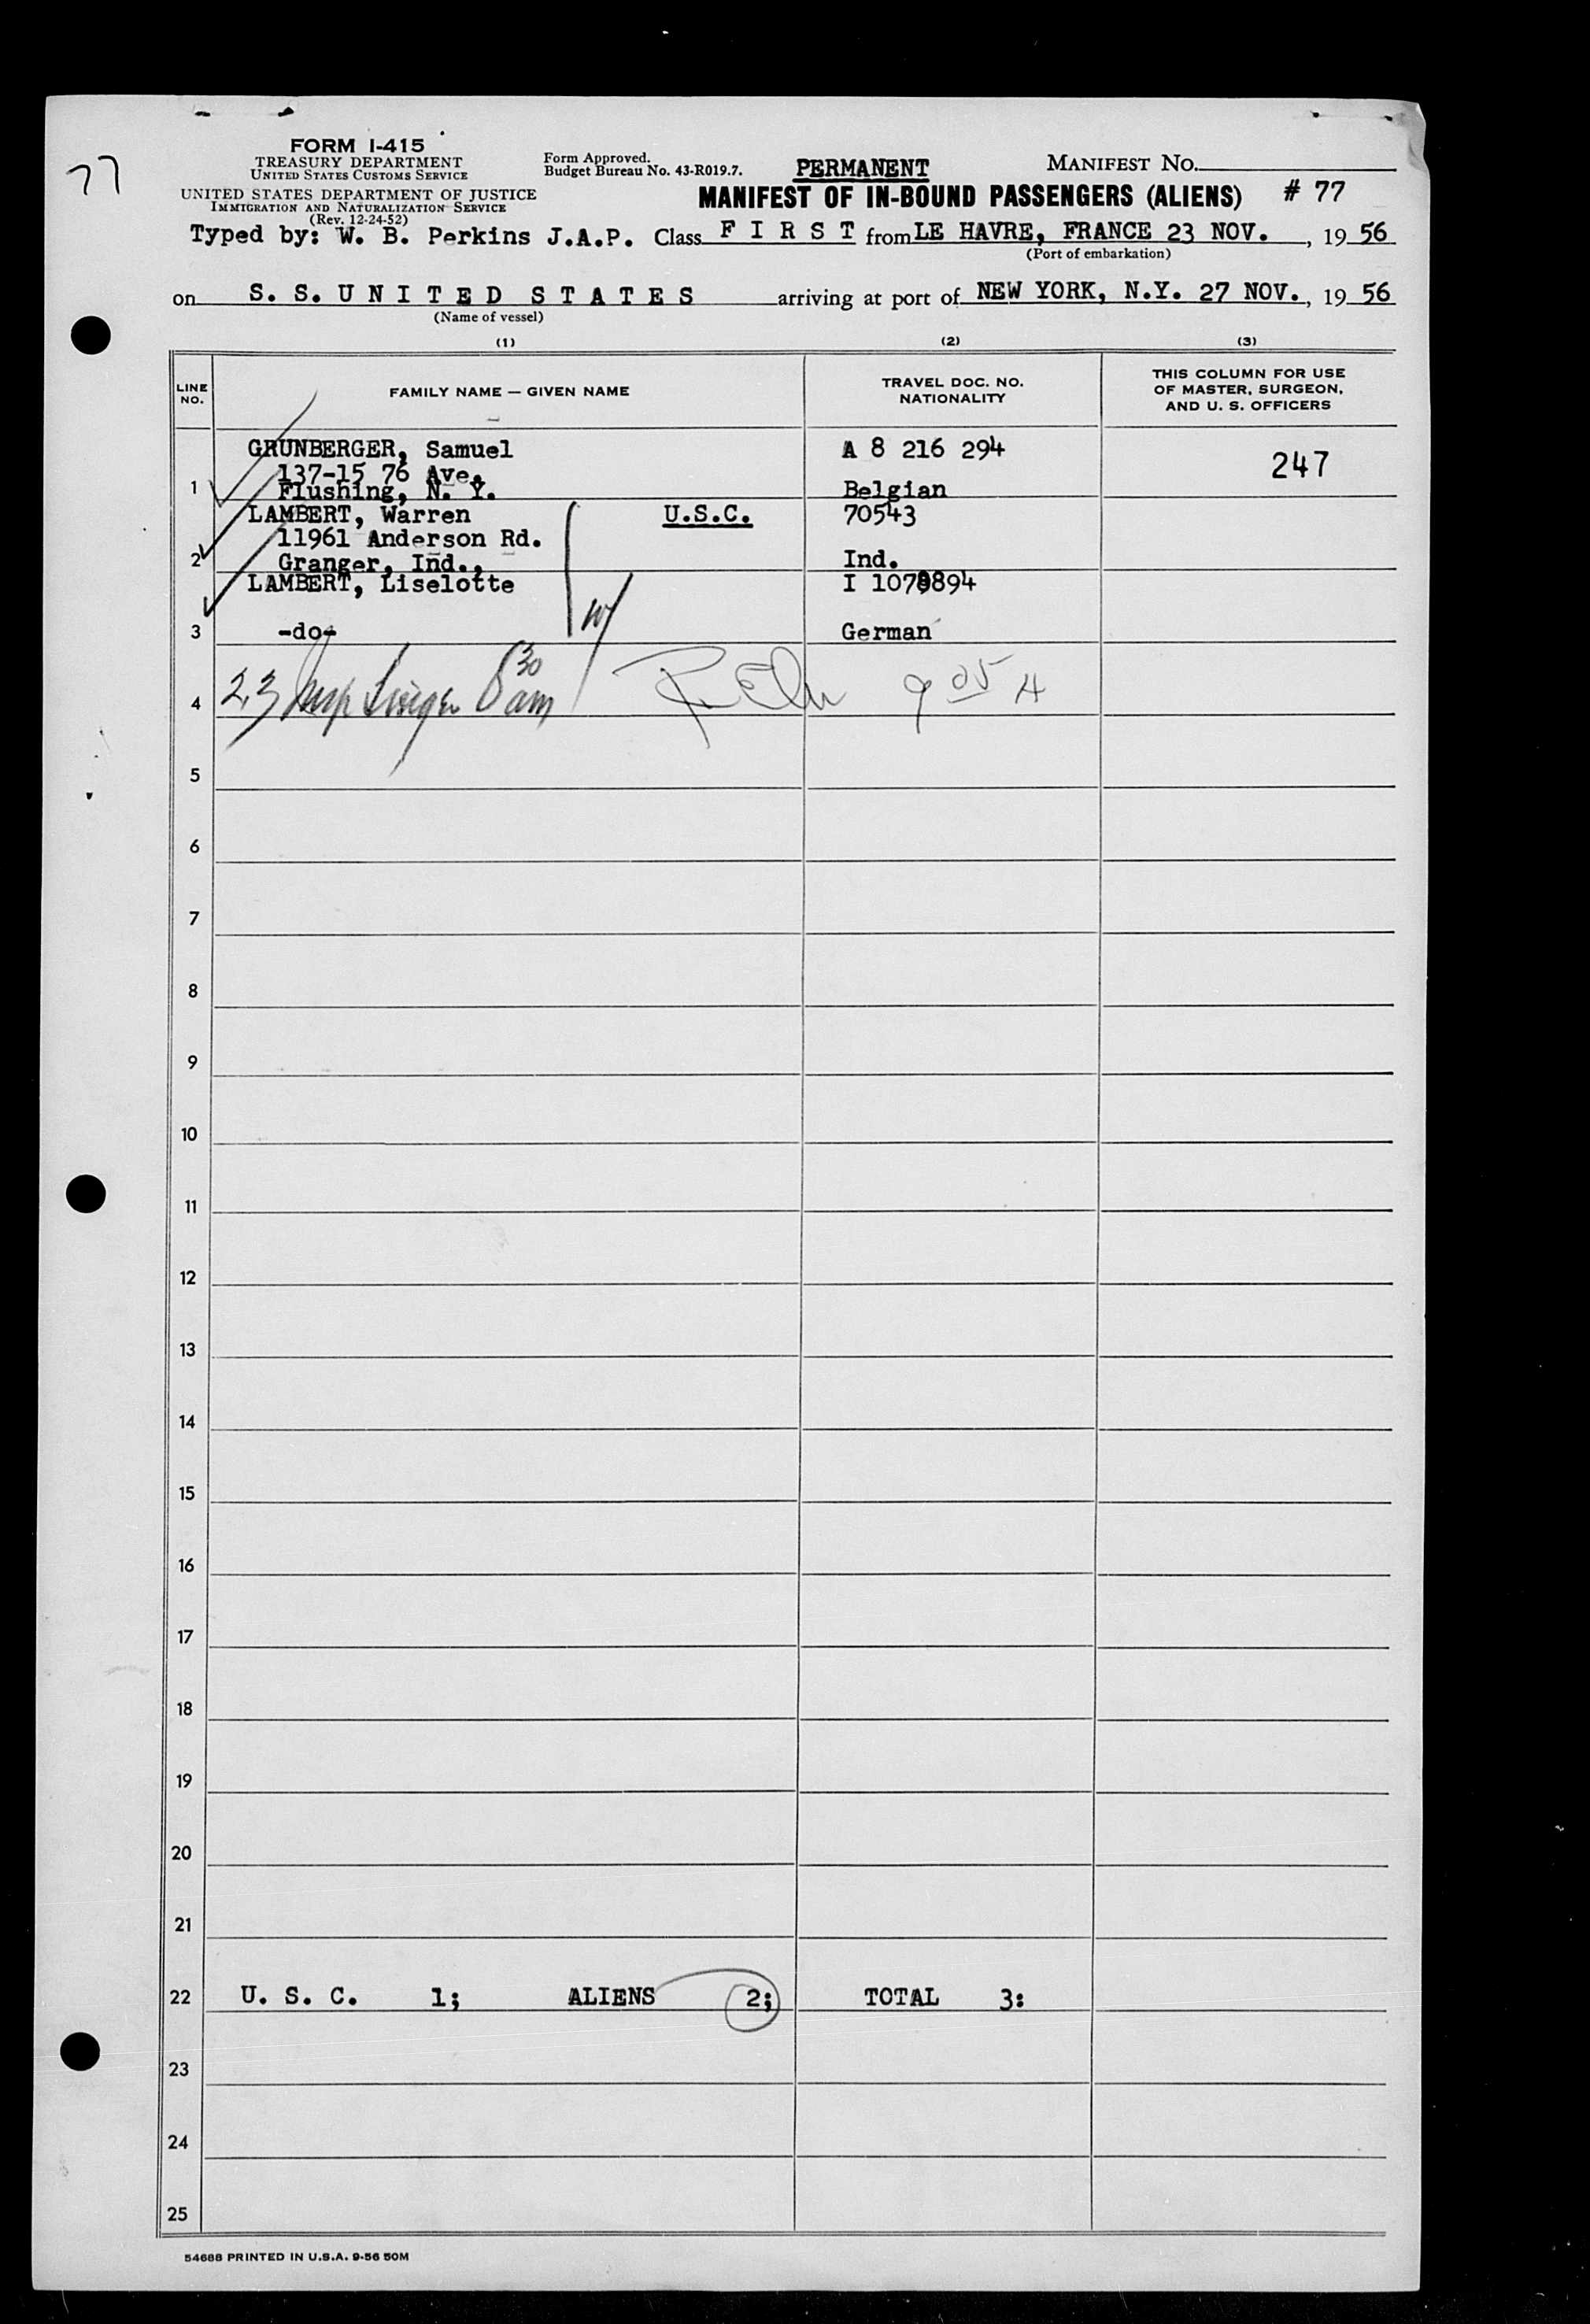 77
FORM I-415
TREASURY DEPARTMENT
UNITED STATES CUSTOMS SERVICE
UNITED STATES DEPARTMENT OF JUSTICE
IMMIGRATION AND NATURALIZATION SERVICE
(Rev. 12-24-52)
Form Approved.
Budget Bureau No. 43-R019.7.
PERMANENT
MANIFEST NO.
MANIFEST OF IN-BOUND PASSENGERS (ALIENS) # 77
Typed by: W. B. Perkins J.A.P. Class F I R S T from LE HAVRE, FRANCE 23 NOV. , 19 56
(Port of embarkation)
on S. S. U N I T E D S T A T E S arriving at port of NEW YORK, N.Y. 27 NOV. , 19 56
(Name of vessel)
(1) (2) (3)
LINE NO.
FAMILY NAME — GIVEN NAME
TRAVEL DOC. NO.
NATIONALITY
THIS COLUMN FOR USE
OF MASTER, SURGEON,
AND U. S. OFFICERS
GRUNBERGER, Samuel A 8 216 294 247
137-15 76 Ave.
1 Flushing, N. Y. Belgian
LAMBERT, Warren U.S.C. 70543
11961 Anderson Rd.
2 Granger, Ind., Ind.
LAMBERT, Liselotte
3 -do- German
4 2,3 8 30 am 9 05 A
5
6
7
8
9
10
11
12
13
14
15
16
17
18
19
20
21
22 U. S. C. 1; ALIENS 2; TOTAL 3:
23
24
25
54688 PRINTED IN U.S.A. 9-56 50M